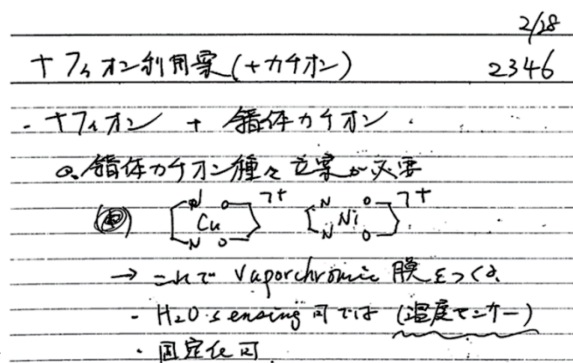 2/28
ナフィオン利用案(+カチオン) 2346
・ナフィオン + 錯体カチオン.
錯体カチオン種々立案が必要
N O ┐+ N O ┐+
Cu Ni
N O N O
→ これで Vaporchromic 膜をつくる.
・H2O sensing 可では (湿度センサー)
・固定化可